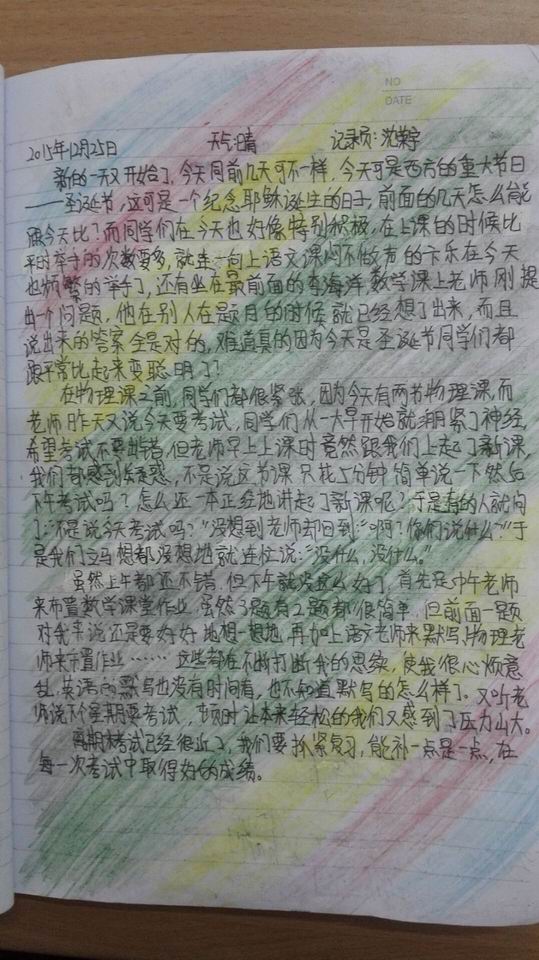 NO
DATE
2015年12月25日 天气:晴 记录员:沈
新的一天又开始了,今天同前几天可不一样,今天可是西方的重大节日
——圣诞节,这可是一个纪念耶稣诞生的日子,前面的几天怎么能
跟今天比?而同学们在今天也好像特别积极,在上课的时候比
平时举手的次数要多,就连一向上语文课闷不做声的卞乐在今天
也频繁的举手了,还有坐在最前面的李海洋,数学课上老师刚提
出一个问题,他在别人在题目的时候就已经想了出来,而且
说出来的答案全是对的,难道真的因为今天是圣诞节同学们都
跟平常比起来变聪明了?
在物理课之前,同学们都很紧张,因为今天有两节物理课,而
老师昨天又说今天要考试,同学们从一大早开始就绷紧了神经,
希望考试不要出错,但老师早上上课时竟然跟我们上起了新课,
我们都感到疑惑,不是说这节课只花5分钟简单说一下然后
下午考试吗?怎么还一本正经地讲起了新课呢?于是有的人就问
了:“不是说今天考试吗?”没想到老师却回到:“啊?你们说什么?”于
是我们立马想都没想地就连忙说:“没什么,没什么。”
虽然上午都还不错,但下午就没这么好了,首先是中午老师
来布置数学课堂作业,虽然3题有2题都很简单,但前面一题
对我来说还是要好好地想一想地,再加上语文老师来默写,物理老
师来布置作业……这些都在不断打断我的思绪,使我很心烦意
乱,英语的默写也没有时间看,也不知道默写的怎么样了。又听老
师说下个星期要考试,顿时让本来轻松的我们又感到了压力山大。
离期末考试已经很近了,我们要抓紧复习,能补一点是一点,在
每一次考试中取得好的成绩。